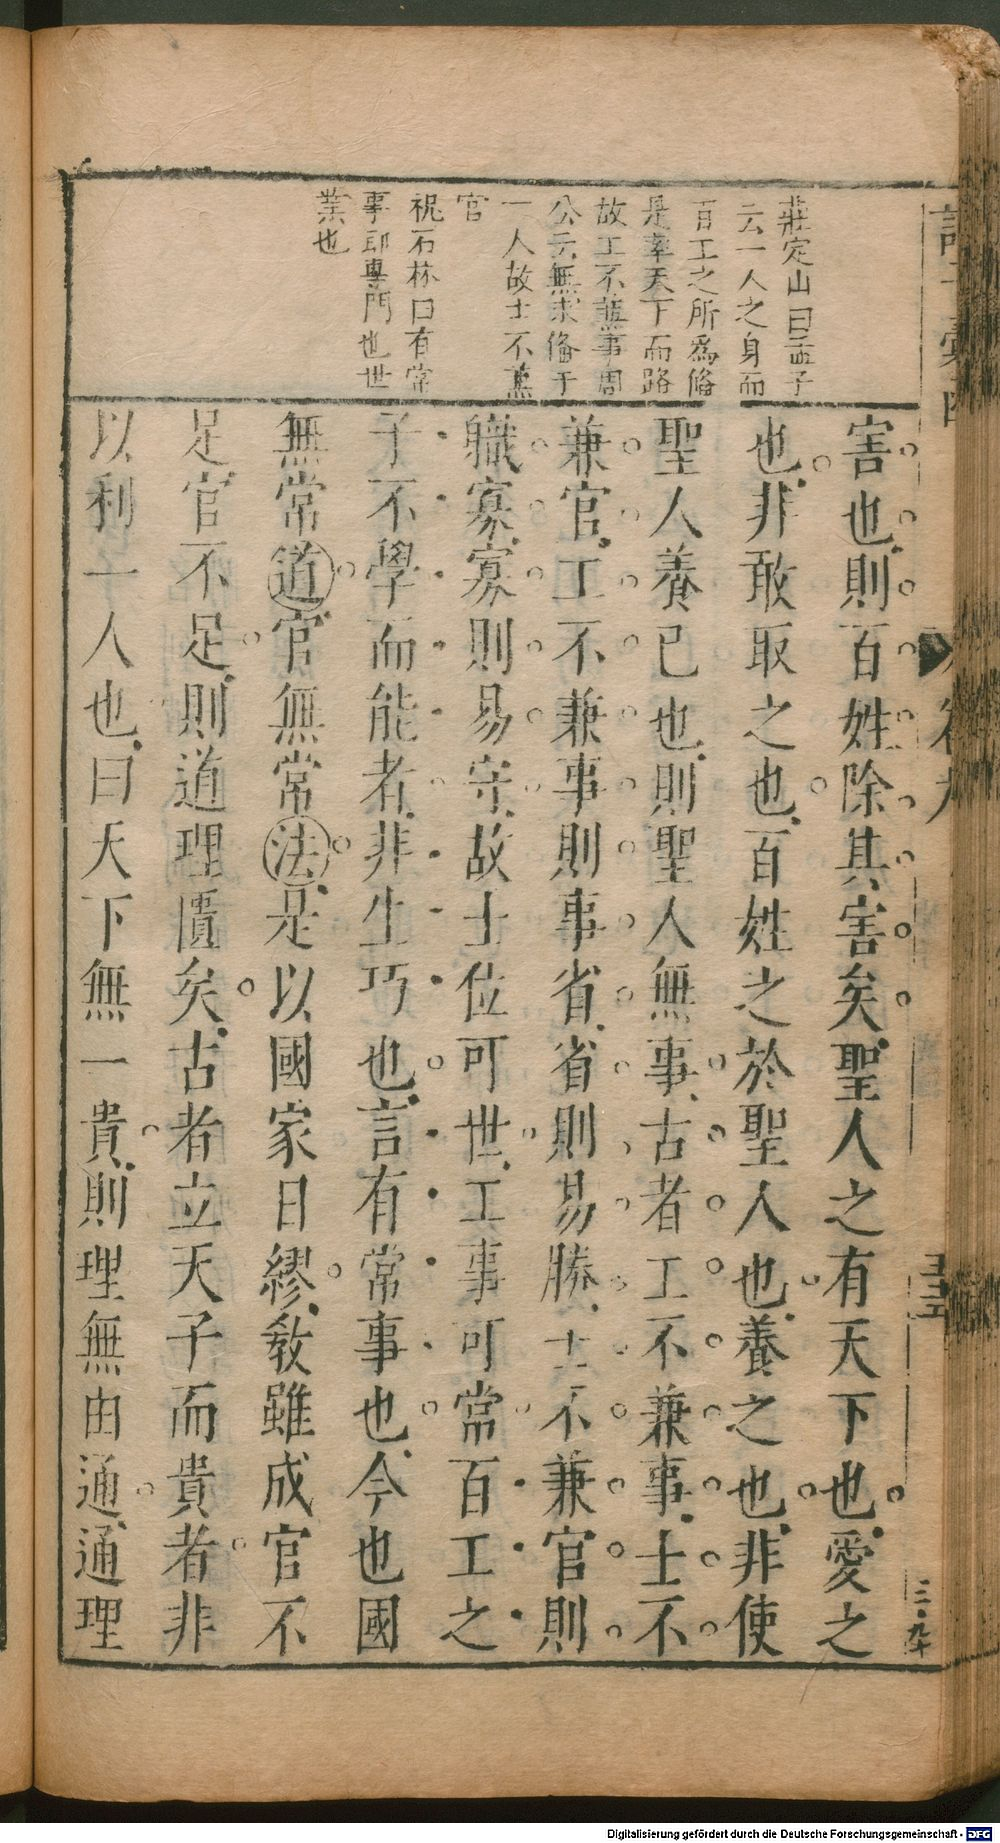 莊定山曰孟子
云一人之身而
百工之所爲備
是率天下而路
故工不蒹事周
公云無求備于
一人故士不蒹
官
祝石林曰有常
事卽專門也世
業也
害也則百姓除其害矣聖人之有天下也愛之
也非敢取之也百姓之於聖人也養之也非使
聖人養已也則聖人無事古者工不兼事士不
兼官工不兼事則事省省則易勝士不兼官則
職寡寡則易守故士位可世工事可常百工之
子不學而能者非生巧也言有常事也今也國
無常道官無常法是以國家日繆教雖成官不
足官不足則道理匱矣古者立天子而貴者非
以利一人也曰天下無一貴則理無由通通理
卷九
三十五
三·九十
Digitalisierung gefördert durch die Deutsche Forschungsgemeinschaft - DFG